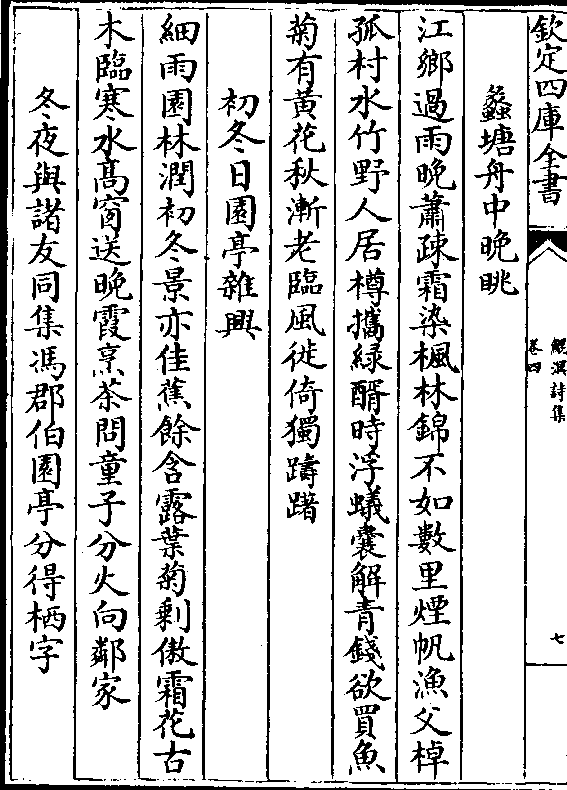 欽定四庫全書
鯤溟詩集
卷四
七
蠡塘舟中晚眺
江鄉過雨晚蕭疎霜染楓林錦不如數里煙帆漁父棹
孤村水竹野人居樽攜緑醑時浮蟻囊解青錢欲買魚
菊有黄花秋漸老臨風徙倚獨躊躇
初冬日園亭雜興
細雨園林潤初冬景亦佳蕉餘含露葉菊剩傲霜花古
木臨寒水髙窗送晚霞烹茶問童子分火向鄰家
冬夜與諸友同集馮郡伯園亭分得栖字